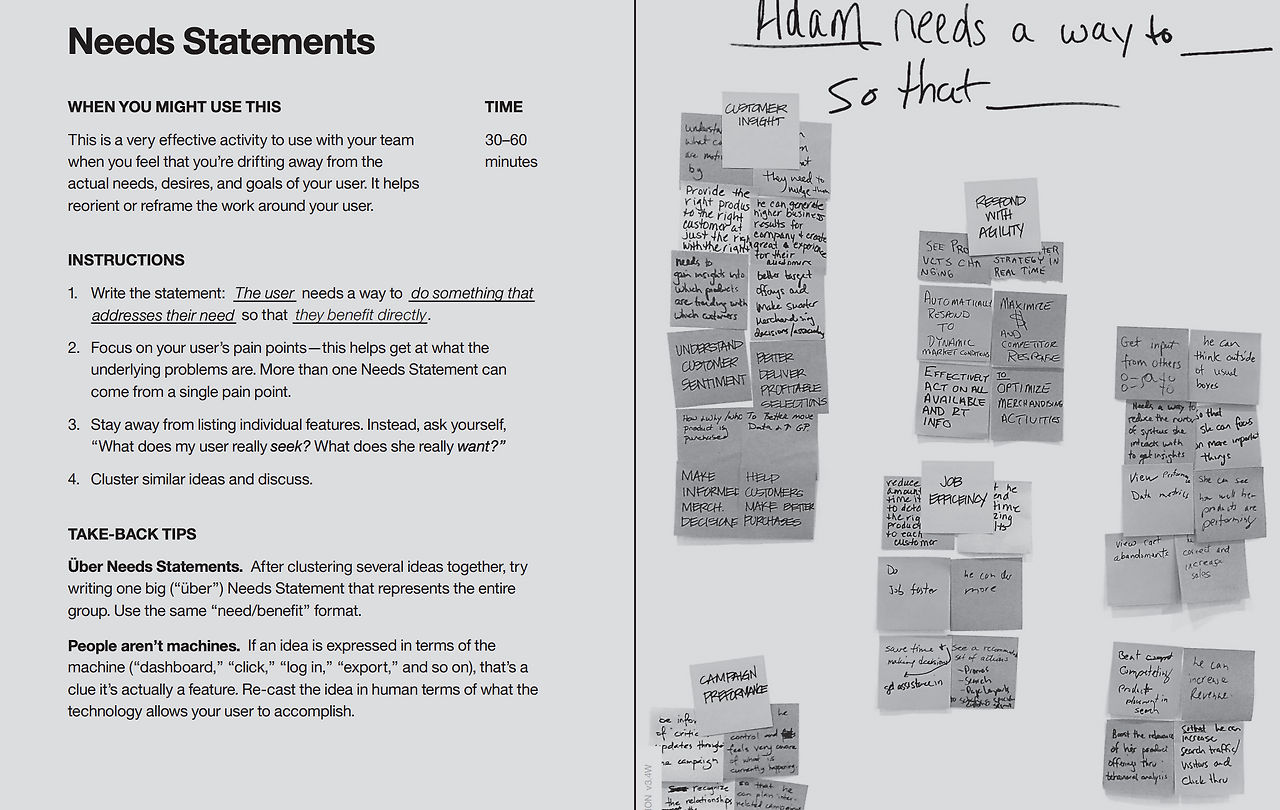 Needs Statements
WHEN YOU MIGHT USE THIS
This is a very effective activity to use with your team
when you feel that you're drifting away from the
actual needs, desires, and goals of your user. It helps
reorient or reframe the work around your user.
TIME
30–60
minutes
INSTRUCTIONS
1. Write the statement: The user needs a way to do something that
addresses their need so that they benefit directly.
2. Focus on your user's pain points—this helps get at what the
underlying problems are. More than one Needs Statement can
come from a single pain point.
3. Stay away from listing individual features. Instead, ask yourself,
“What does my user really seek? What does she really want?”
4. Cluster similar ideas and discuss.
TAKE-BACK TIPS
Über Needs Statements. After clustering several ideas together, try
writing one big (“über”) Needs Statement that represents the entire
group. Use the same “need/benefit” format.
People aren't machines. If an idea is expressed in terms of the
machine (“dashboard,” “click,” “log in,” “export,” and so on), that's a
clue it's actually a feature. Re-cast the idea in human terms of what the
technology allows your user to accomplish.
Adam needs a way to
so that
CUSTOMER
INSIGHT
what
by
they need to
nudge them
Provide the
right
to the right
customer at
just the
with the right
he can generate
higher business
results for
company & create
great experience
for their
customers
needs to
gain insights into
which products
are trending with
which customers
better target
offerings and
make smarter
merchandising
decisions
UNDERSTAND
CUSTOMER
SENTIMENT
BETTER
DELIVER
PROFITABLE
SELECTIONS
How & Why / who
product is
purchased
To Better move
Data & GP
MAKE
INFORMED
MERCH.
DECISIONS
HELP
CUSTOMERS
MAKE BETTER
PURCHASES
RESPOND
WITH
AGILITY
SEE
STRATEGY IN
REAL TIME
AUTOMATICALLY
RESPOND
TO
DYNAMIC
MARKET CONDITIONS
MAXIMIZE
$
AND
COMPETITOR
RESPONSE
EFFECTIVELY
ACT ON ALL
AVAILABLE
AND RT
INFO
TO
OPTIMIZE
MERCHANDISING
ACTIVITIES
JOB
EFFICIENCY
reduce
amount
time it
to
the
product
to each
customer
he
time
Do
Job faster
he can do
more
save time &
making decisions
get assistance in
See a
set of actions
- Promos
- Search
Get input
from others
he can
think outside
of usual
boxes
Needs a way to
reduce the
of systems she
interacts with
to get insights
so that
she can focus
on more important
things
View
Data metrics
she can see
how well her
products are
performing
View cart
abandonments
correct and
increase
sales
Beat
Competeting
Product
placement in
search
he can
increase
Revenue.
Boost the relevance
of his product
offerings thru
behavioral analysis
so that he can
increase
search traffic/
visitors and
click thru
CAMPAIGN
PREFORMANCE
be
of
updates through
campaign
he
control and
feels very aware
of what is
currently happening
recognize
the relationships
so that he
can plan inter-
related campaigns
ION v3.4W